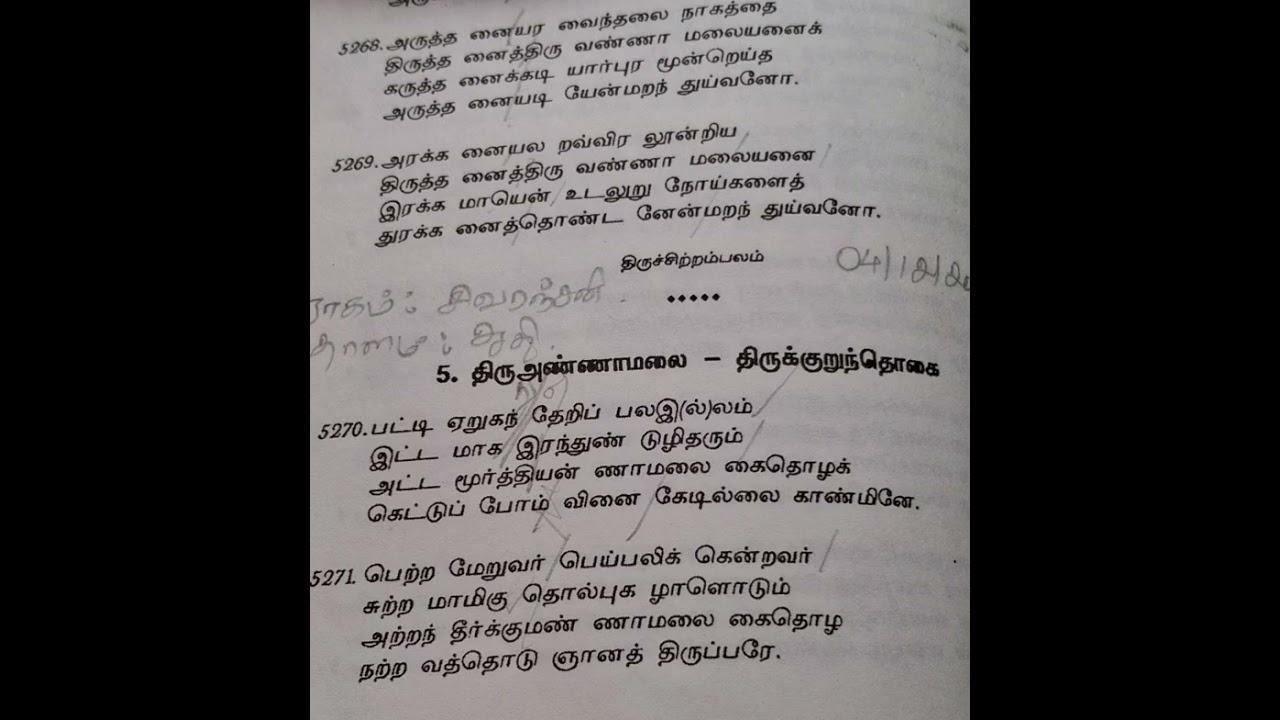 5268. அருத்த னையர வைந்தலை நாகத்தை
திருத்த னைத்திரு வண்ணா மலையனைக்
கருத்த னைக்கடி யார்புர மூன்றெய்த
அருத்த னையடி யேன்மறந் துய்வனோ.
5269. அரக்க னையல றவ்விர லூன்றிய
திருத்த னைத்திரு வண்ணா மலையனை
இரக்க மாயென் உடலுறு நோய்களைத்
துரக்க னைத்தொண்ட னேன்மறந் துய்வனோ.
திருச்சிற்றம்பலம்
ராகம் : சிவரஞ்சனி
•••••
தாளம் : ஆதி
5. திருஅண்ணாமலை – திருக்குறுந்தொகை
5270. பட்டி ஏறுகந் தேறிப் பலஇ(ல்)லம்
இட்ட மாக இரந்துண் டுழிதரும்
அட்ட மூர்த்தியண் ணாமலை கைதொழக்
கெட்டுப் போம் வினை கேடில்லை காண்மினே.
5271. பெற்ற மேறுவர் பெய்பலிக் கென்றவர்
சுற்ற மாமிகு தொல்புக ழாளொடும்
அற்றந் தீர்க்குமண் ணாமலை கைதொழ
நற்ற வத்தொடு ஞானத் திருப்பரே.